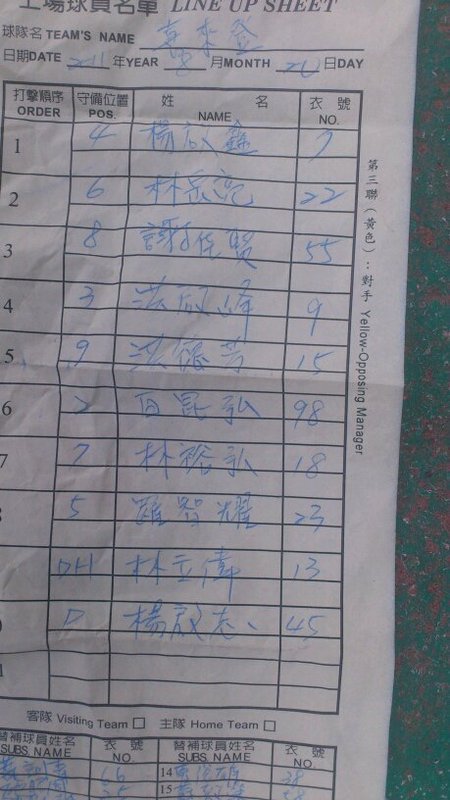 上場球員名單 LINE UP SHEET
球隊名 TEAM'S NAME 喜來登
日期DATE 2011 年YEAR 8 月MONTH 20 日DAY
打擊順序 ORDER 守備位置 POS. 姓 名 NAME 衣 號 NO.
1 4 楊啟鑫 7
2 6 林岳 22
3 8 謝佳賢 55
4 3 洪啟峰 9
5 9 洪德芳 15
6 2 昆弘 98
7 7 林裕弘 18
5 羅智耀 23
DH 林立偉 13
P 楊啟志 45
第三聯(黃色):對手 Yellow-Opposing Manager
客隊 Visiting Team □ 主隊 Home Team □
替補球員姓名 SUBS. NAME 衣 號 NO. 替補球員姓名 SUBS. NAME 衣 號 NO.
66 14 38
15